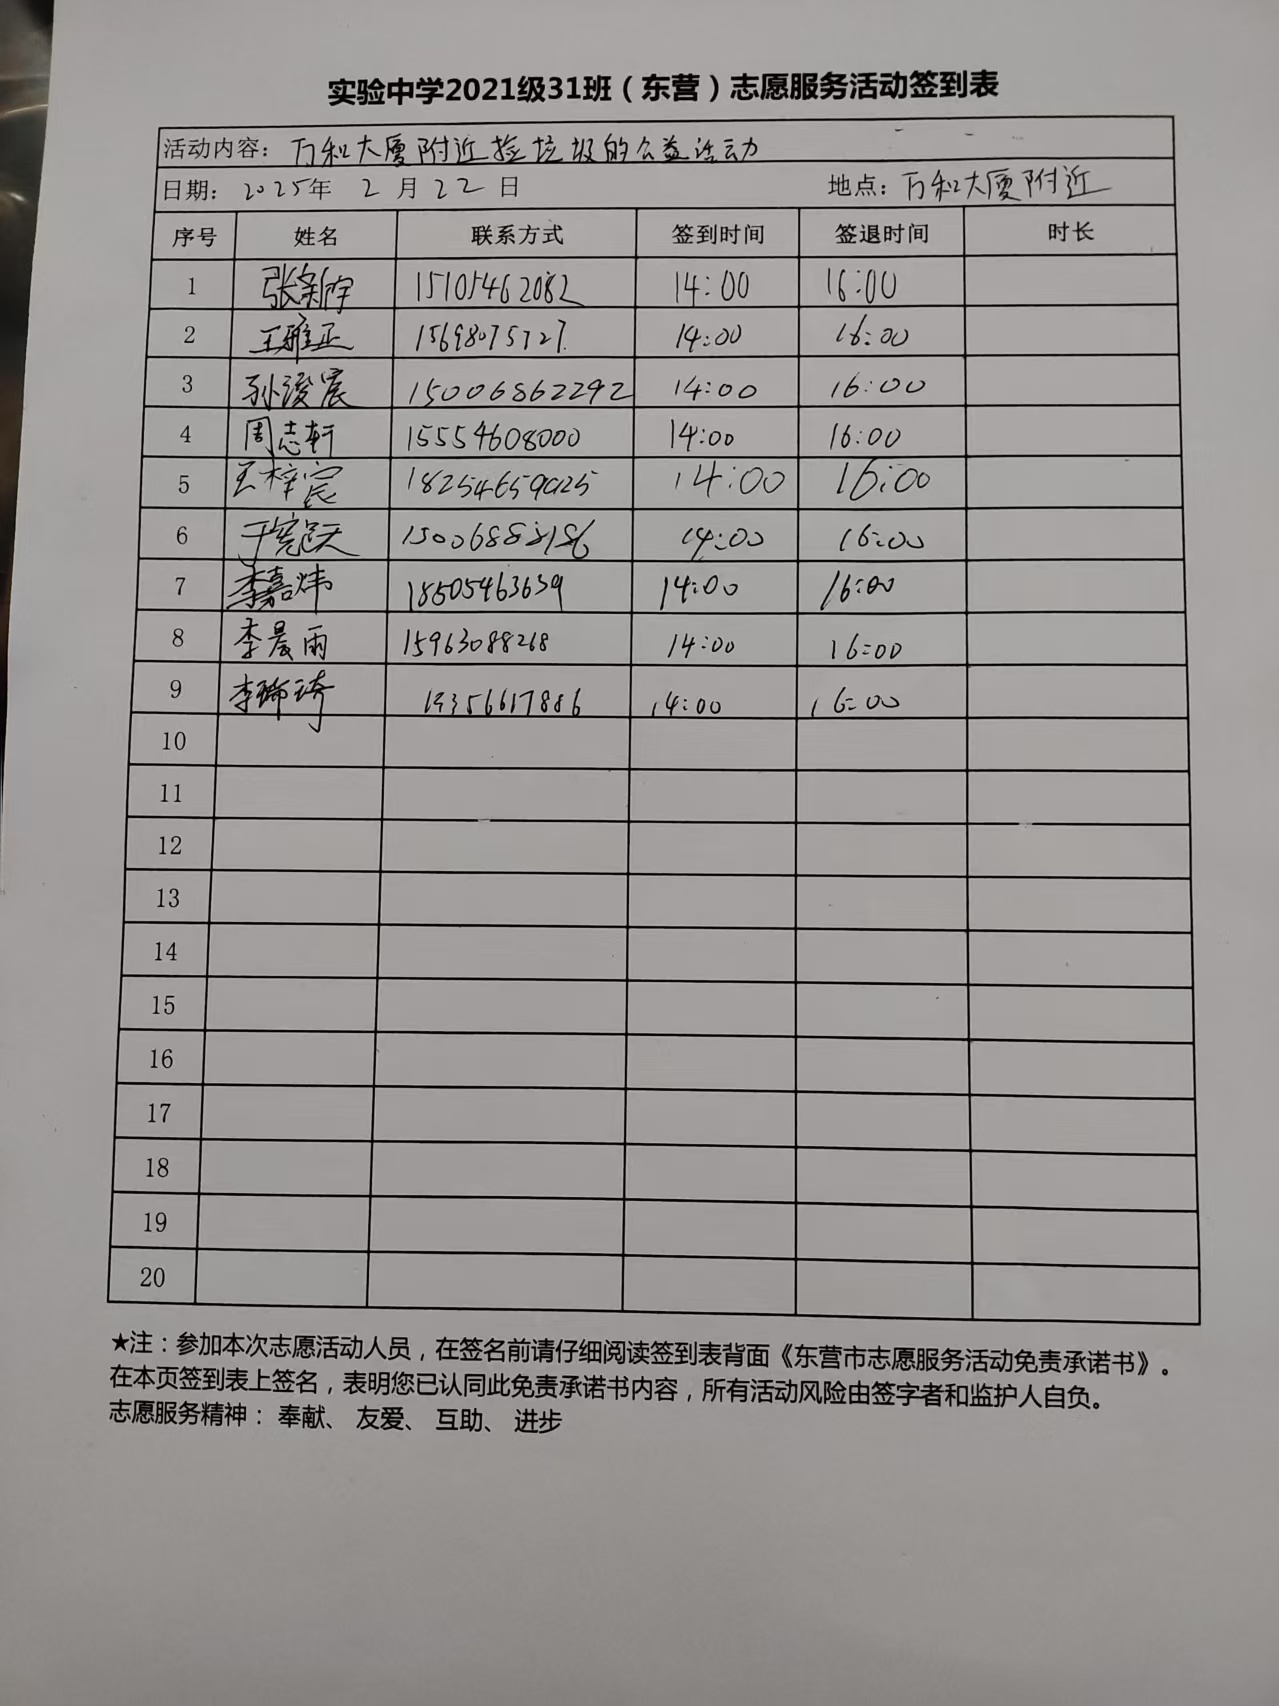 实验中学2021级31班（东营）志愿服务活动签到表
活动内容：万和大厦附近捡垃圾的公益活动
日期：2025年 2 月 22 日 地点：万和大厦附近
序号 姓名 联系方式 签到时间 签退时间 时长
1 张新宇 15105462082 14:00 16:00
2 王雅正 15698075727 14:00 16:00
3 孙浚宸 15006862292 14:00 16:00
4 周志轩 15554608000 14:00 16:00
5 王梓宸 18254659025 14:00 16:00
6 14:00 16:00
7 李嘉炜 18505463639 14:00 16:00
8 李晨雨 15963088268 14:00 16:00
9 14:00 16:00
10
11
12
13
14
15
16
17
18
19
20
★注：参加本次志愿活动人员，在签名前请仔细阅读签到表背面《东营市志愿服务活动免责承诺书》。
在本页签到表上签名，表明您已认同此免责承诺书内容，所有活动风险由签字者和监护人自负。
志愿服务精神： 奉献、 友爱、 互助、 进步